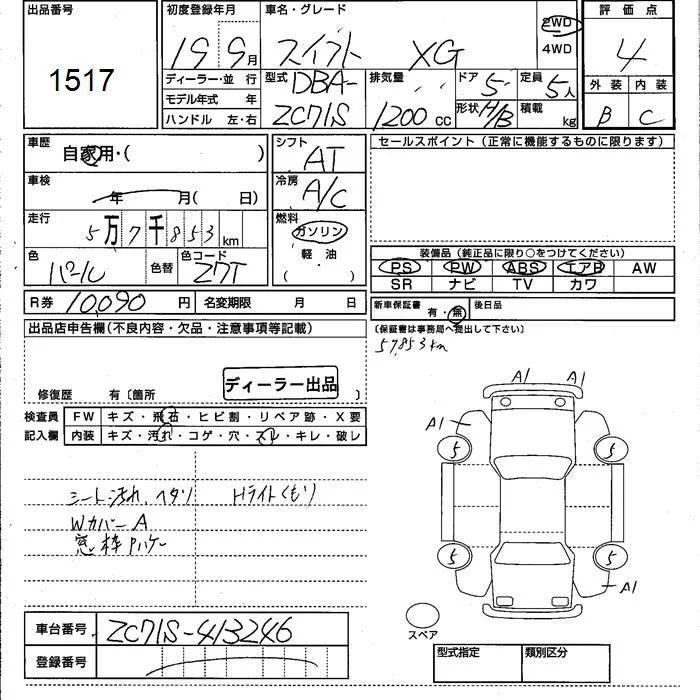 出品番号
1517
初度登録年月
19 9月
車名・グレード
スイフト XG
2WD
4WD
評価点
4
外装 内装
B C
ディーラー・並行
モデル年式 年
ハンドル 左・右
型式
DBA-
ZC71S
排気量
1200 cc
ドア 5
形状 H/B
定員 5人
積載 kg
車歴
自家用・( )
車検
年 月( 日)
走行
5万7千853km
色
パール
色替
色コード
Z7T
シフト
AT
冷房
A/C
燃料
ガソリン
軽・油
( )
セールスポイント(正常に機能するものに限ります)
装備品(純正品に限り○をつけてください)
PS PW ABS エアB AW
SR ナビ TV カワ
R券 10,090 円 名変期限 月 日
新車保証書 有・無 後日品
(保証書は事務局へ提出して下さい)
57,853km
出品店申告欄(不良内容・欠品・注意事項等記載)
ディーラー出品
修復歴 有〔箇所 〕
検査員
記入欄
FW キズ・飛石・ヒビ割・リペア跡・X要
内装 キズ・汚れ・コゲ・穴・スレ・キレ・破レ
シート汚れ、ヘタリ Hライトくもり
Wカバー A
窓枠 Pハゲ
A1 A1
A1
5 5
5 5
A1
スペア
車台番号 ZC71S-413246
登録番号
型式指定 類別区分